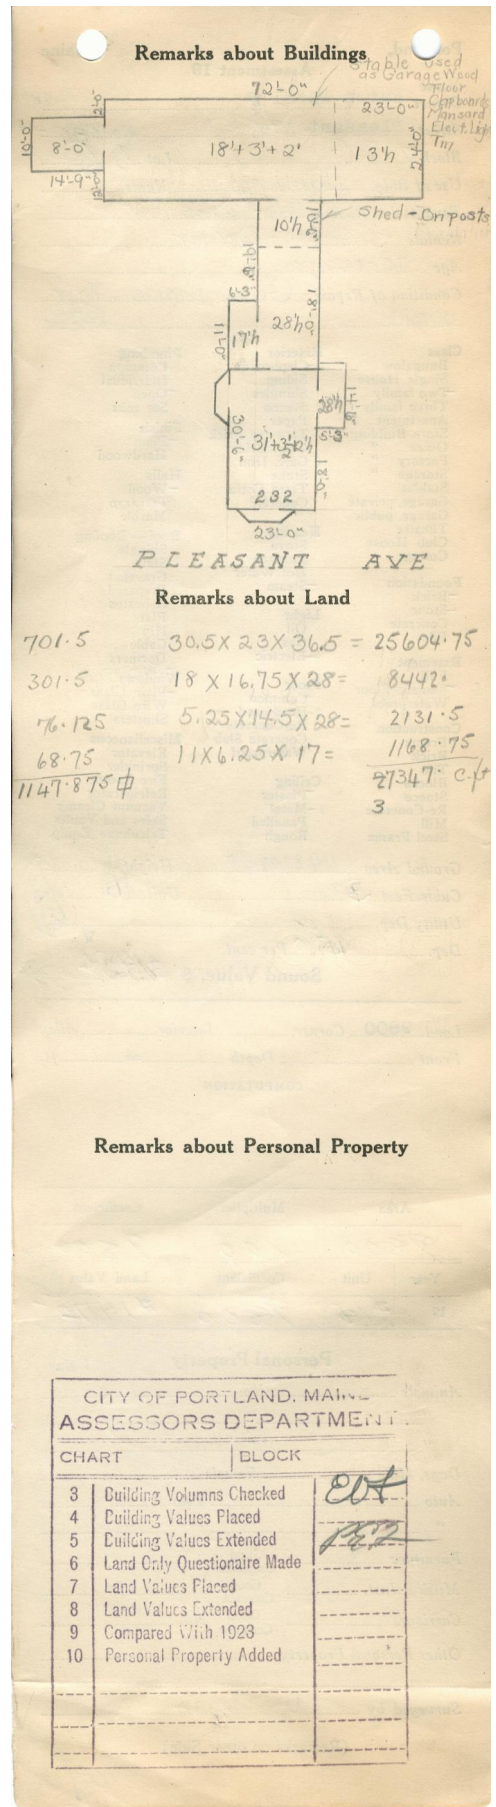 Remarks about Buildings
Stable Used
as Garage Wood
Floor
Clapboards
Mansard
Elect. Light
72'-0"
23'-0"
2'-0"
10'-0"
8'-0"
18'+3'+2'
13'h
24'-0"
14'-9"
12'-0"
10'h
Shed - On posts
6'-3"
18'-0"
28'h
17'h
11'-0"
28'h
5'-3"
30'-6"
31'+3½'+2'h
18'-0"
232
23'-0"
PLEASANT AVE
Remarks about Land
701.5 30.5 X 23 X 36.5 = 25604.75
301.5 18 X 16.75 X 28 = 8442.
76.125 5.25 X 14.5 X 28 = 2131.5
68.75 11 X 6.25 X 17 = 1168.75
1147.875 27347. c.ft
3
Remarks about Personal Property
CITY OF PORTLAND, MAINE
ASSESSORS DEPARTMENT
CHART BLOCK
3 Building Volumns Checked
4 Building Values Placed
5 Building Values Extended
6 Land Only Questionaire Made
7 Land Values Placed
8 Land Values Extended
9 Compared With 1923
10 Personal Property Added